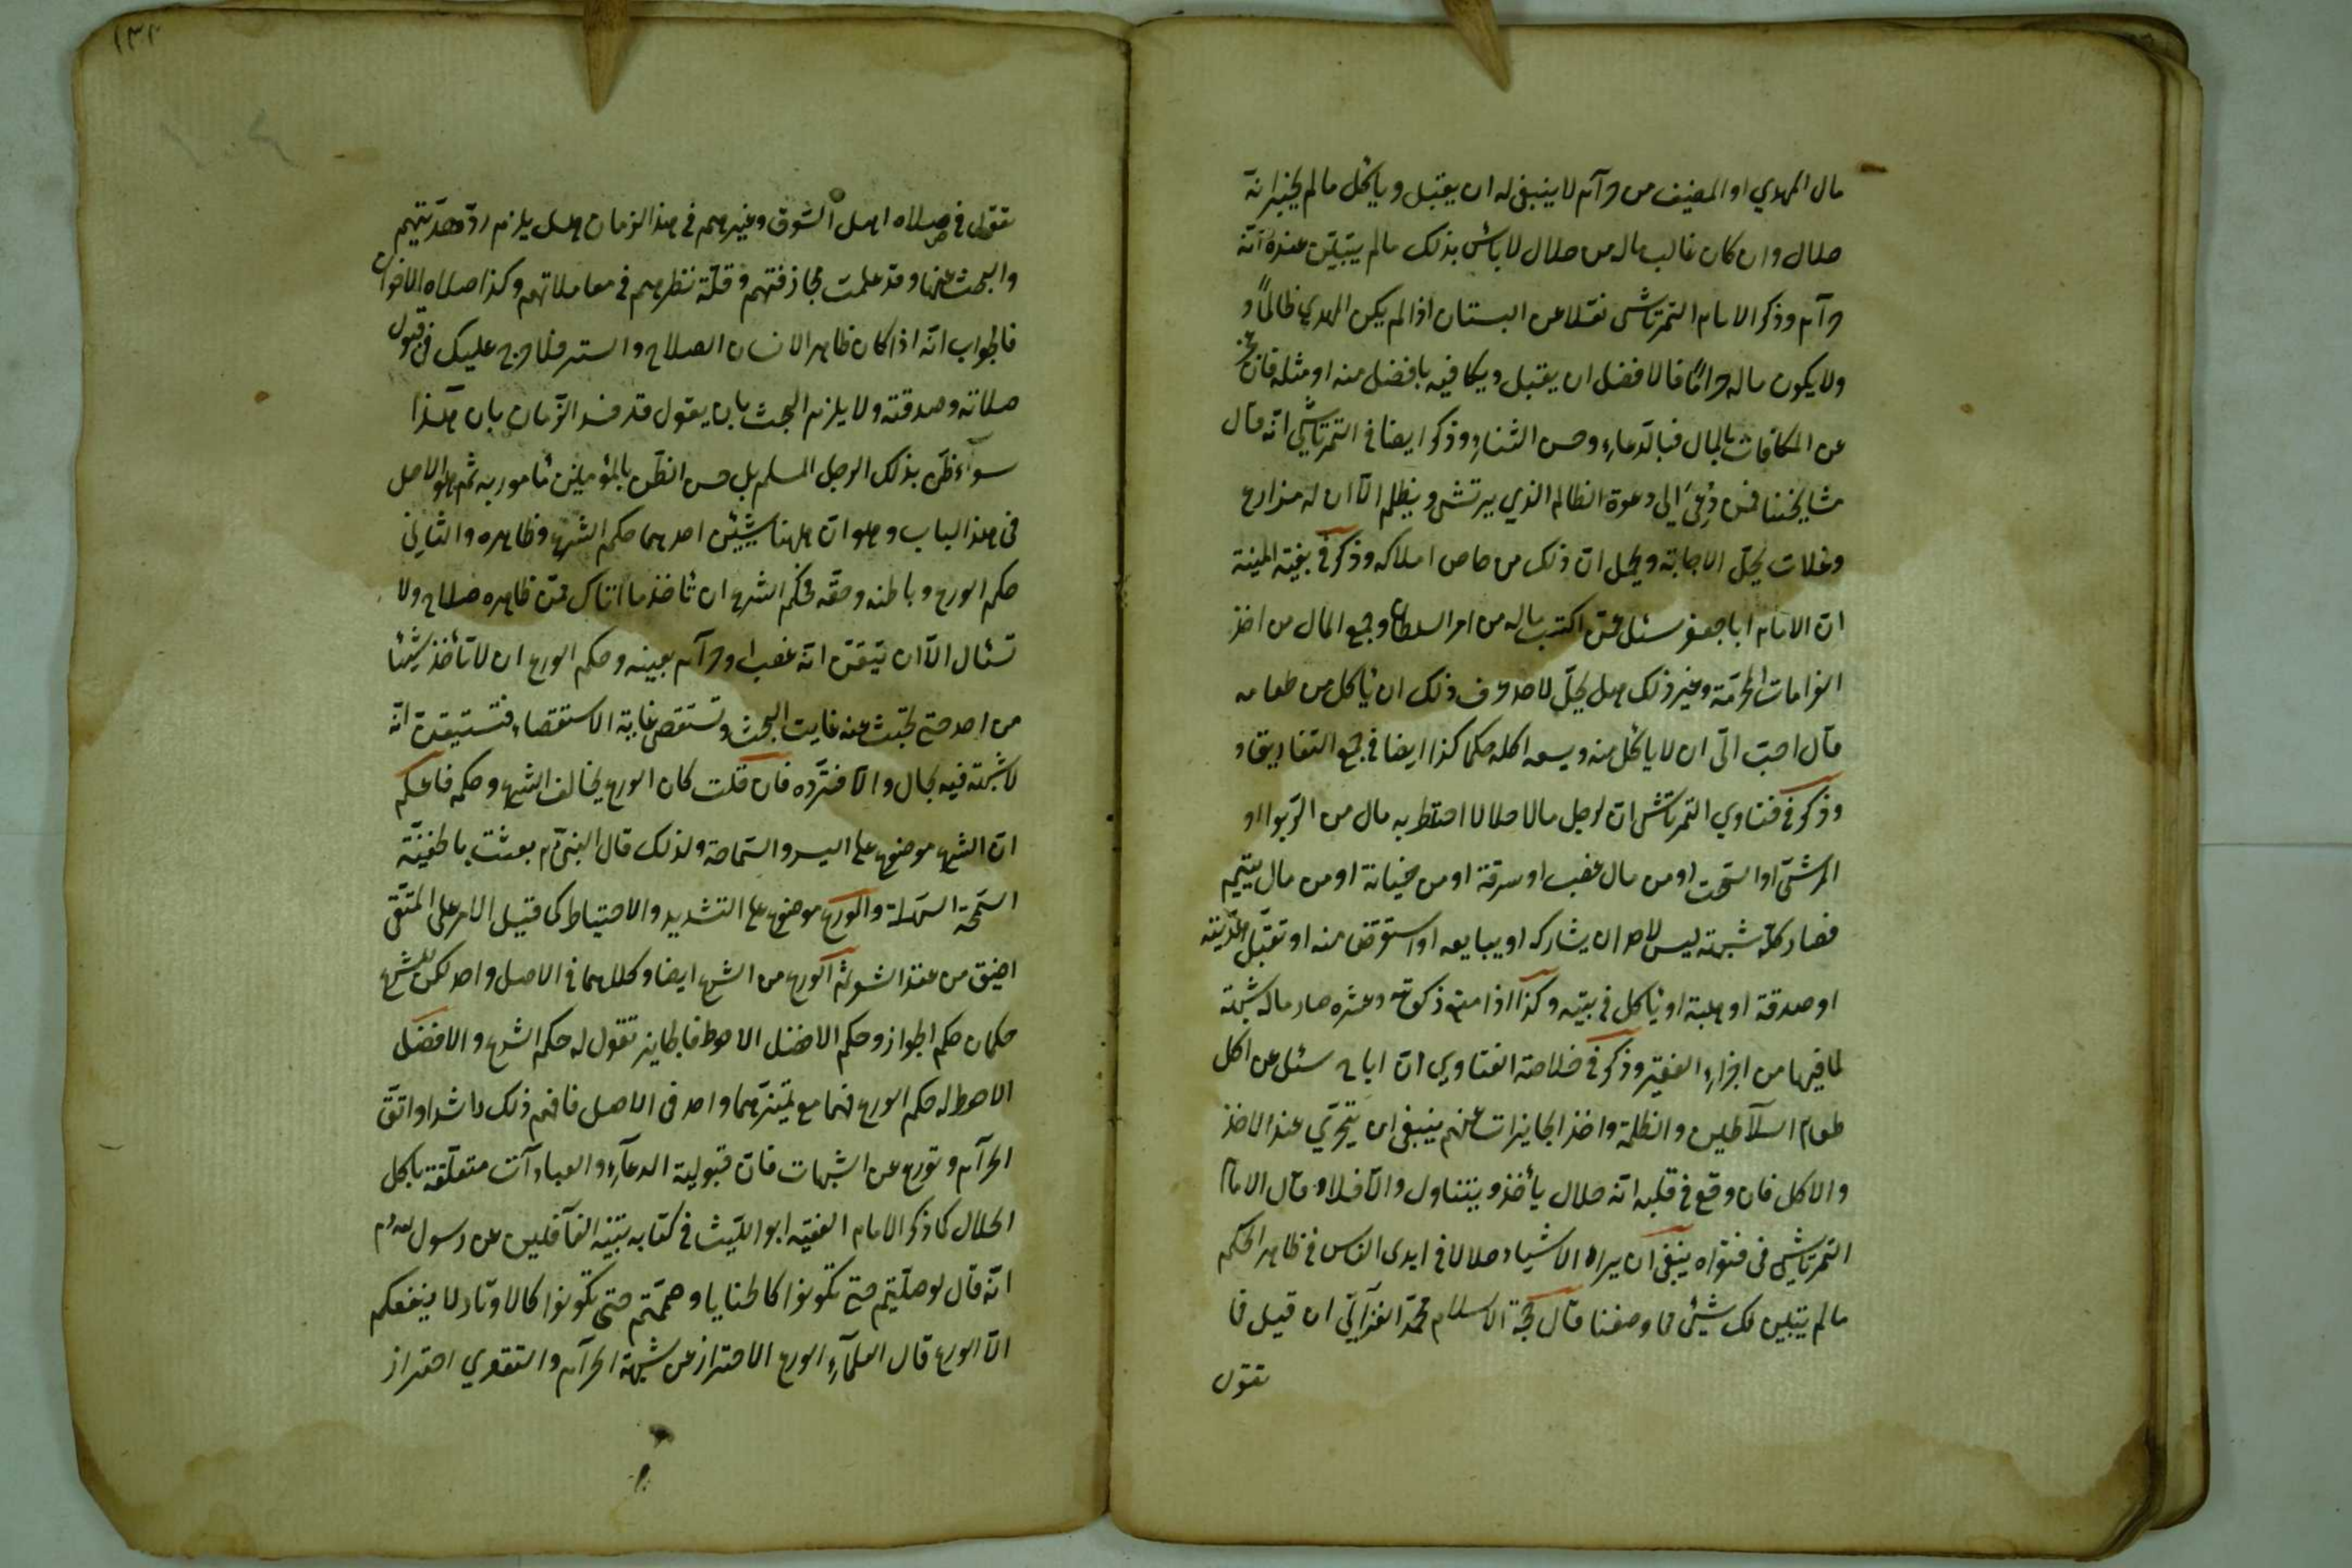 مال المهدي او المضيف من حرام لا ينبغي له ان يقبل وياكل مالم يخبر انه
حلال وان كان غالب ماله من حلال لا بأس بذلك مالم يتبين عنده انّه
حرام وذكر الامام التمرتاشى نقلا عن البستان اذا لم يكن المهدي ظالماً و
ولا يكون ماله حراماً فالافضل ان يقبل ويكا فيه بافضل منه او مثله فان عجز
عن المكافات بالمال فبالدعاء وحسن الثناء وذكر ايضا في التمرتاشي انّه قال
مشايخنا فمن دُعِيَ الى دعوة الظالم الذي يرتشى ويظلم الّا ان له مزارع
وغلات يحلّ الاجابة ويحمل ان ذلك من خاص املاكه وذكر في بغية المنية
ان الامام ابا جعفر سئل عمّن اكتسب ماله من امر السلطان وجمع المال من اخذ
الغرامات المحرّمة وغير ذلك هل يحلّ لاحد عرف ذلك ان يأكل من طعامه
قال احبّ الىّ ان لا يأكل منه ويسعه اكله حكما كذا ايضا في جمع التفاريق و
وذكر في فتاوي التمرتشى ان لرجل مالا حلالا اختلط به مال من الربوا او
الرشى او السحت او من مال غصب او سرقة او من خيانة او من مال يتيم
فصار كلّه شبهة ليس لاحد ان يشاركه او يبايعه او استقرض منه او تقبّل هديته
او صدقة او هبة او يأكل في بيته وكذا اذا منع زكوته وعشره صار ماله شبهة
لما فيها من اجزاء الفقير وذكر في خلاصة الفتاوي ان ابا ح سئل عن اكل
طعام السلاطين والظلمة واخذ الجايزات عنهم ينبغي ان يتحرّي عند الاخذ
والاكل فان وقع في قلبه انّه حلال يأخذ ويتناول والّا فلا وقال الامام
التمرتاشي في فتواه ينبغي ان يراه الاشياء حلالا في ايدى الناس في ظاهر الحكم
مالم يتبين لك شيئ مما وصفنا قال حجة الاسلام محمّد الغزّالي ان قيل فما
تقول
١٣٢
تقول في صلاه اهل السوق وغيرهم في هذا الزمان هل يلزم ردّ هديتهم
والبحث عنها وقد علمت مجازفتهم وقلّة نظرهم في معاملاتهم وكذا صلاه الاخوان
فالجواب انّه اذا كان ظاهر الانسان الصلاح والستر فلا حرج عليك في قبول
صلاته وصدقته ولا يلزم البحث بان يقول قد فسد الزمان بان هذا
سوآء ظن بذلك الرجل المسلم بل حسن الظن بالمؤمنين مأمور به ثم هو الاصل
في هذا الباب وهو ان ههنا شيئين احدهما حكم الشرع وظاهره والثاني
حكم الورع وباطنه وحقه فحكم الشرع ان تأخذ ما اتاك ممّن ظاهره صلاح ولا
تسئال الّا ان تيقن انّه غصب او حرام بعينه وحكم الورع ان لا تأخذ شيئا
من احد حتى تجتث عنه غايت البحث وتستقص غاية الاستقصاء فتستيقن انّه
لا شبهة فيه بحال والّا فتردّه فان قلت كان الورع يخالف الشرع وحكمه فاعلم
ان الشرع موضوع على اليسر والسّماحة ولذلك قال النبيّ م بعثت بالحنفيّة
السمحة السهلة والورع موضوع على التشديد والاحتياط كما قيل الامر على المتقي
اضيق من عقد الشوثم الورع من الشرع ايضا وكلاهما في الاصل واحد لكن للشرع
حكمان حكم الجواز وحكم الافضل الاحوط فالجايز تقول له حكم الشرع والافضل
الاحوط له حكم الورع فهما مع تميّزهما واحد في الاصل فافهم ذلك راشدا واتق
الحرام وتورع عن الشبهات فان قبولية الدعآء والعبادآت متعلّقة باكل
الحلال كما ذكر الامام الفقيه ابو الليث في كتابه تنبيه الغآفلين عن رسول الله م
انّه قال لو صلّيتم حتى تكونوا كالحنايا وصمتم حتى تكونوا كالاوتاد لا ينفعكم
الّا الورع قال العلمآء الورع الاحتراز عن شبهة الحرام والتقوي احتراز